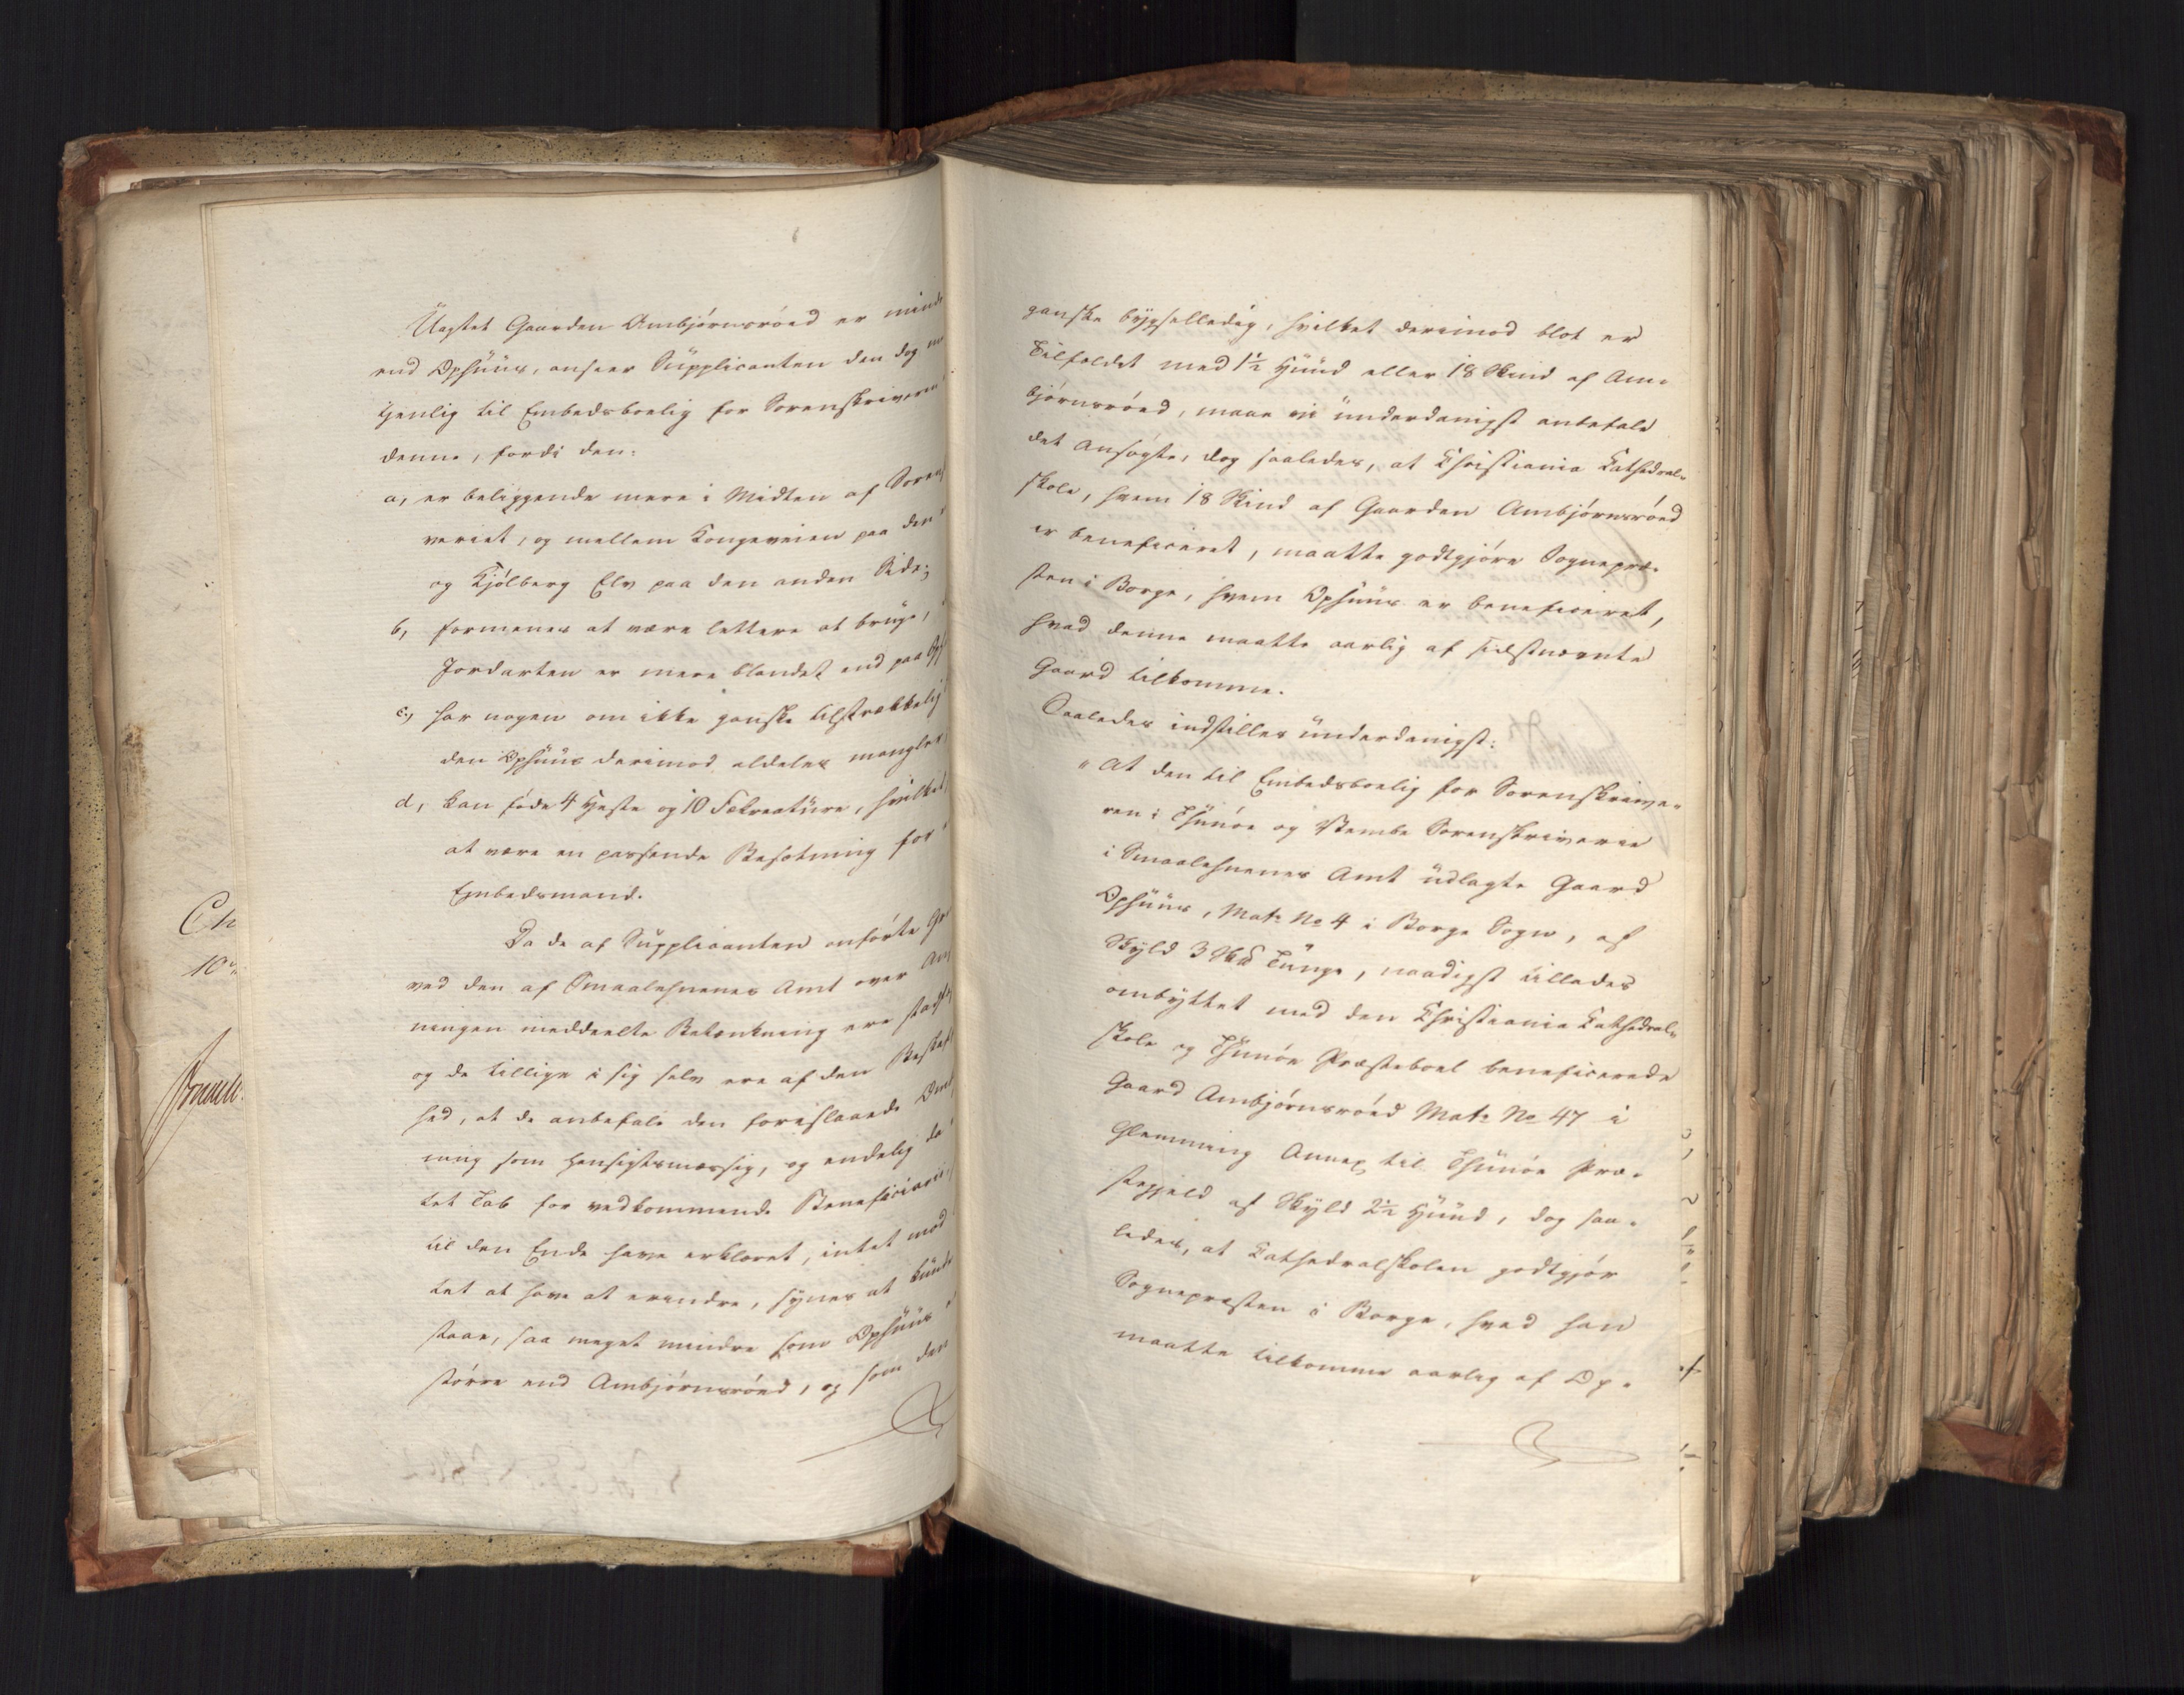 Uagtet Gaarden Ambjørnsrød er mind
end Ophuus, anseer Supplicanten den dog
tjenlig til Embedsbolig for Sorenskriveren
denne, fordi den:
a, er beliggende mere i Midten af Soren
veriet, og mellem Kongeveien paa den
og Kjølberg Elv paa den anden Side;
b, formenes at være lettere at bruge,
Jordarten er mere blandet end paa Oph
c, har nogen om ikke ganske tilstrækkelig
den Ophuus derimod aldeles mangler
d, kan føde 4 Heste og 10 Fækreature, hvilket
at være en passende Besætning for
Embedsmand.
Da de af Supplicanten anførte Gr
ved den af Smaalehnenes Amt over An
ningen meddeelte Betænkning ere stadfæ
og de tillige i sig selv ere af den Beskaff
hed, at de anbefale den foreslaaede Omb
ning som hensigtsmæssig, og endelig da
tet Tab for vedkommende Beneficiarii,
til den Ende have erklæret, intet mod
tet at have at erindre, synes at kunde
staae, saa meget mindre som Ophuus
større end Ambjørnsrød, og som den
Ch
10
ganske bygselledig, hvilket derimod blot er
Tilfældet med 1½ Huud eller 18 Skind af Am-
bjørnsrød, maae vi underdanigst anbefale
det Ansøgte, dog saaledes, at Christiania Kathedral-
skole, hvem 18 Skind af Gaarden Ambjørnsrød
er beneficeret, maatte godtgjøre Sognepræ-
sten i Borge, hvem Ophuus er beneficeret,
hvad denne maatte aarlig af sidstnævnte
Gaard tilkomme.
Saaledes indstilles underdanigst:
"At den til Embedsbolig for Sorenskrive-
ren i Thunøe og Vembe Sorenskriverie
i Smaalehnenes Amt udlagte Gaard
Ophuus, Matr No 4 i Borge Sogn, af
Skyld 3 Skd Tunge, naadigst tillades
ombyttet med den Christiania Kathedral-
skole og Thunøe Præstebord beneficerede
Gaard Ambjørnsrød Matr No 47 i
Glemming Annex til Thunøe Præ-
stegjeld af Skyld 2½ Huud, dog saa-
ledes, at Kathedralskolen godtgjør
Sognepræsten i Borge, hvad han
maatte tilkomme aarlig af Op-